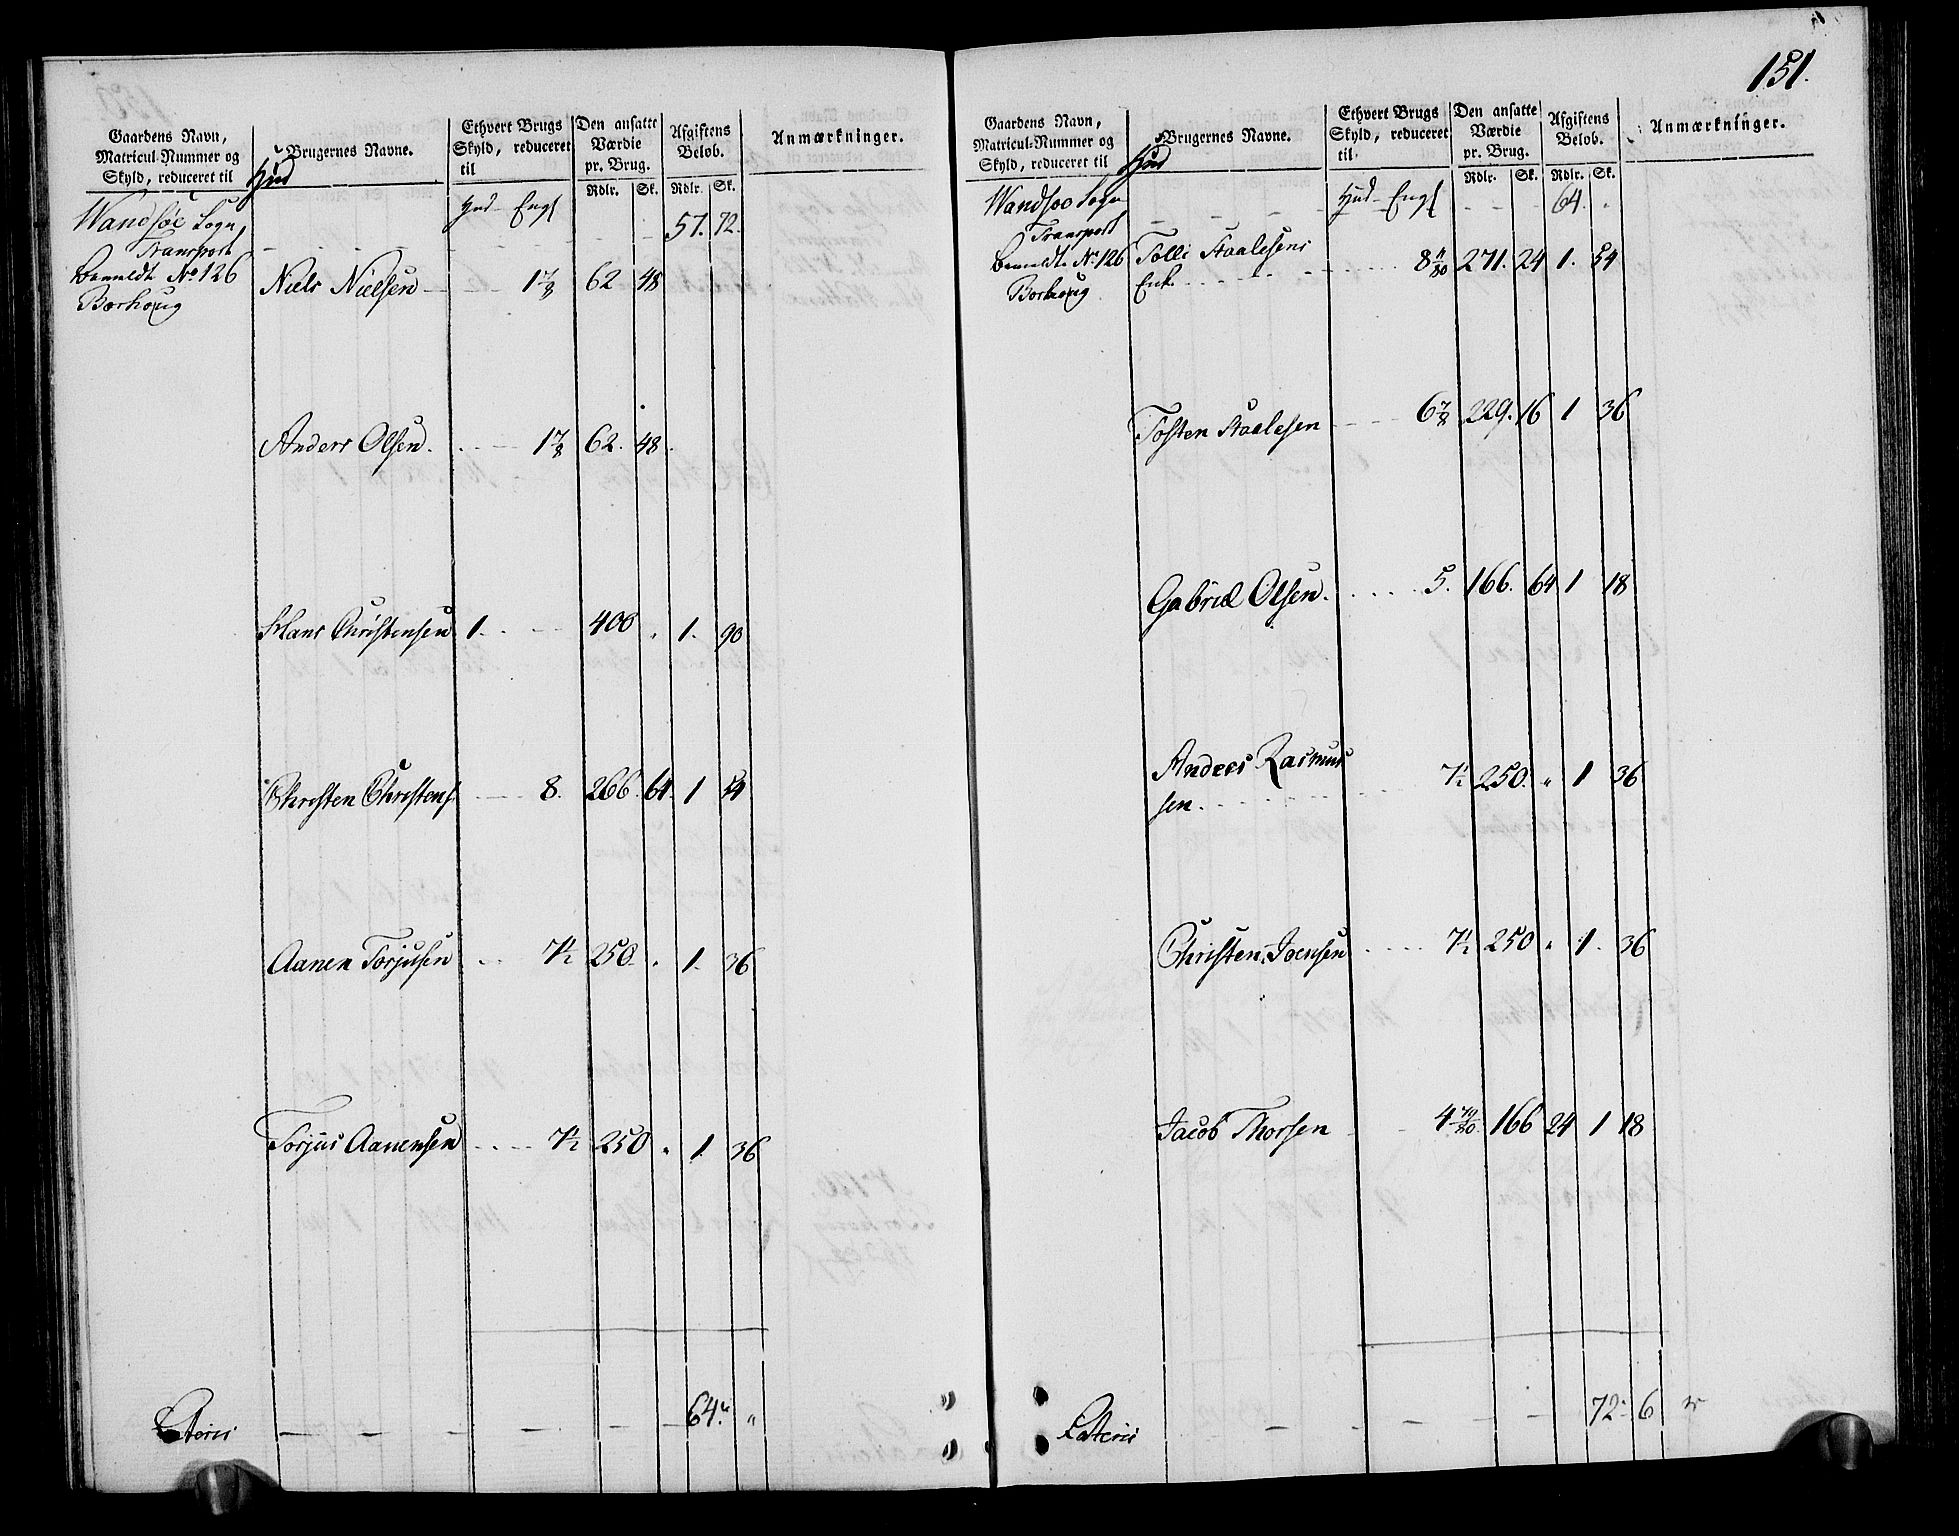 151.
Gaardens Navn,
Matricul-Nummer og
Skyld, reduceret til
Hud
Brugernes Navne.
Ethvert Brugs
Skyld, reduceret
til
Den ansatte
Værdie
pr. Brug.
Rdlr. Sk.
Afgiftens
Beløb.
Rdlr. Sk.
Anmærkninger.
Wandsøe Sogn,
Transport
Hud Eng
57. 72.
bemeldte No 126
Borhoug
Niels Nielsen 1 7/8 62 48
Anders Olsen. 1 7/8 62. 48.
Hans Christensen 1. 400 " 1. 90
Christen Christens. 8. 266. 64. 1 54
Aanen Torjusen 7 1/2 250. " 1. 36
Torjus Aanensen 7 1/2 250 " 1. 36
Lateris 64. "
Gaardens Navn,
Matricul-Nummer og
Skyld, reduceret til
Hud
Brugernes Navne.
Ethvert Brugs
Skyld, reduceret
til
Den ansatte
Værdie
pr. Brug.
Rdlr. Sk.
Afgiftens
Beløb.
Rdlr. Sk.
Anmærkninger.
Wandsøe Sogn
Transport
Hud Eng
64. "
bemeldte No 126
Borhoug
Tolle Staalesens
Enk. 8 11/80 271. 24 1. 54
Tosten Staalesen 6 7/8 229. 16 1 36
Gabriel Olsen. 5. 166. 64 1 18
Anders Rasmus
sen. 7 1/2 250. " 1 36
Christen Joensen 7 1/2 250 " 1. 36
Jacob Thorsen 4 79/80 166 24 1 18
Lateris 72. 6